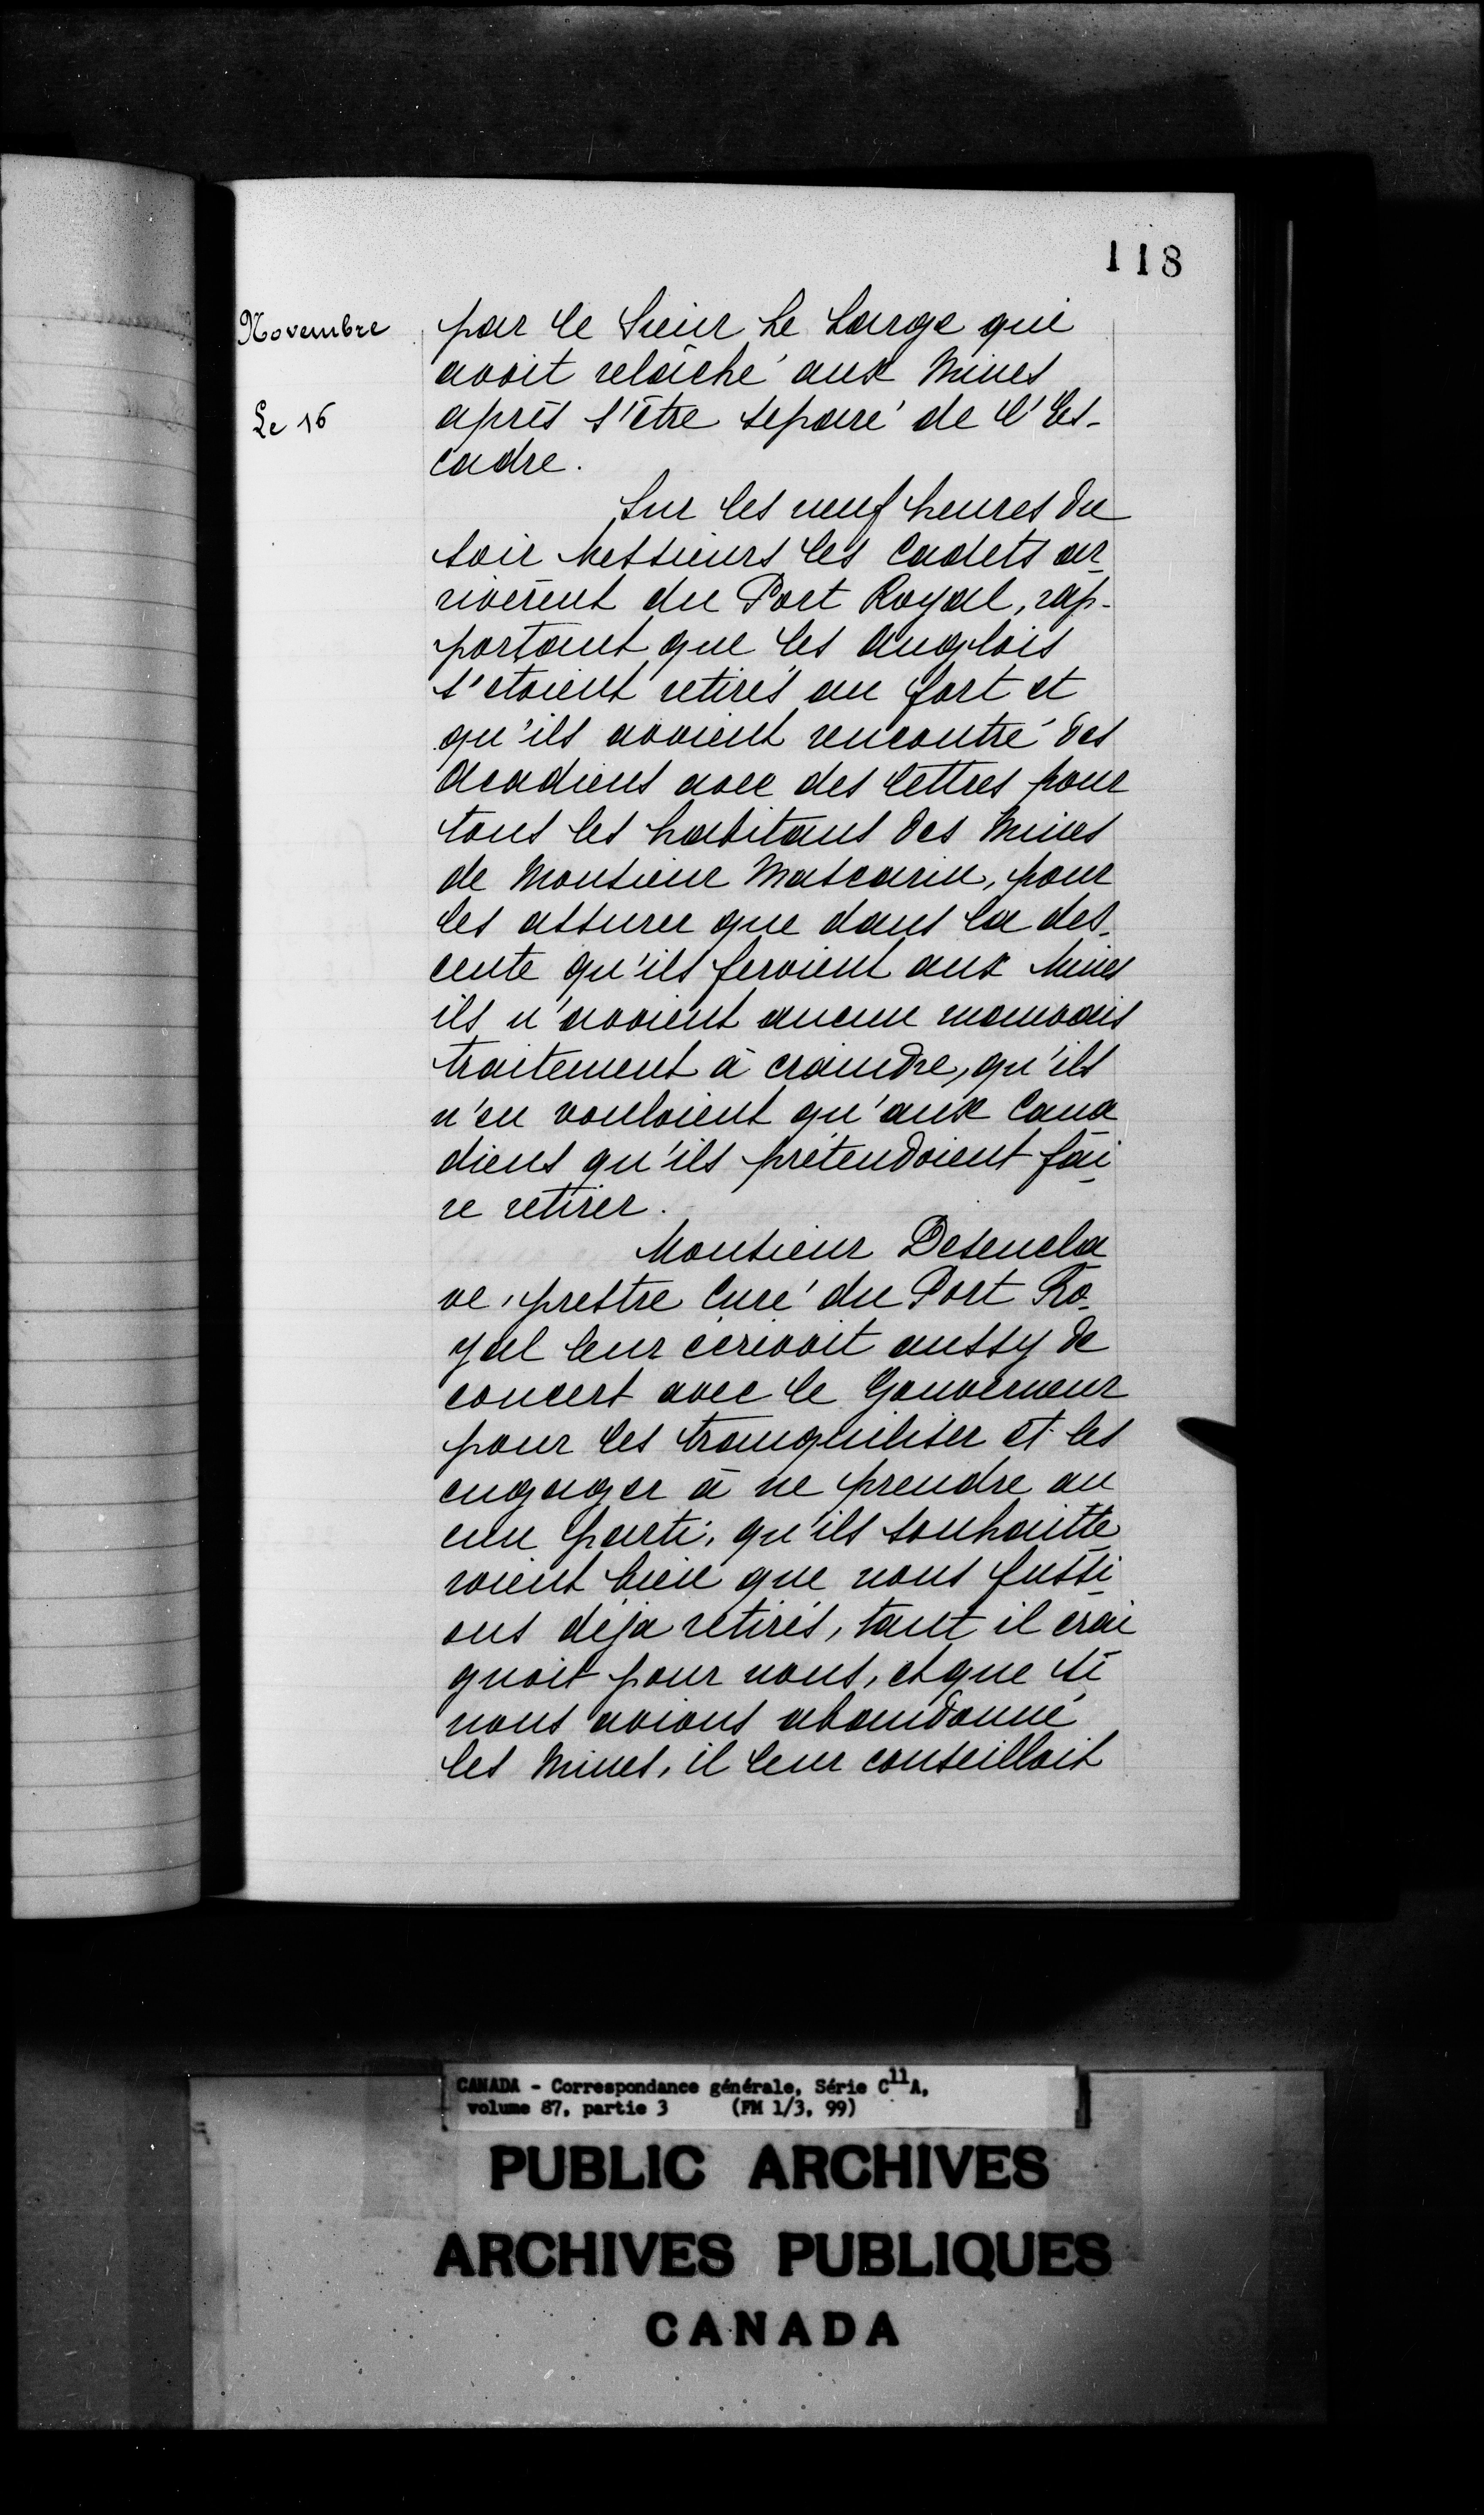 118
Novembre
Le 16
par le Sieur Le Large qui
avoit relâché aux Mines
après s'être separé de l'Es-
cadre.
Sur les neuf heures du
soir Messieurs les Cadets ar
rivèrent du Port Royal, rap-
portant que les Anglois
s'etoient retirés au fort et
qu'ils avoient rencontré des
Acadiens avec des lettres pour
tous les habitans des Mines
de Monsieur Mascarin, pour
les assurer que dans la des-
cente qu'ils feroient aux Mines
ils n'avoient aucun mauvais
traitement à craindre, qu'ils
n'en vouloient qu'aux Cana
diens qu'ils prétendoient fai
re retirer.
Monsieur Desencla
ve, prestre Curé du Port Ro
yal leur écrivoit aussy de
concert avec le Gouverneur
pour les tranquiliser et les
engager à ne prendre au
cun parti, qu'ils souhaitte
roient bien que nous fussi
ons déja retirés, tant il crai
gnoit pour nous, et que si
nous avions abandonné
les Mines, il leur conseilloit
CANADA - Correspondance générale, Série C11A,
volume 87, partie 3 (FM 1/3, 99)
PUBLIC ARCHIVES
ARCHIVES PUBLIQUES
CANADA